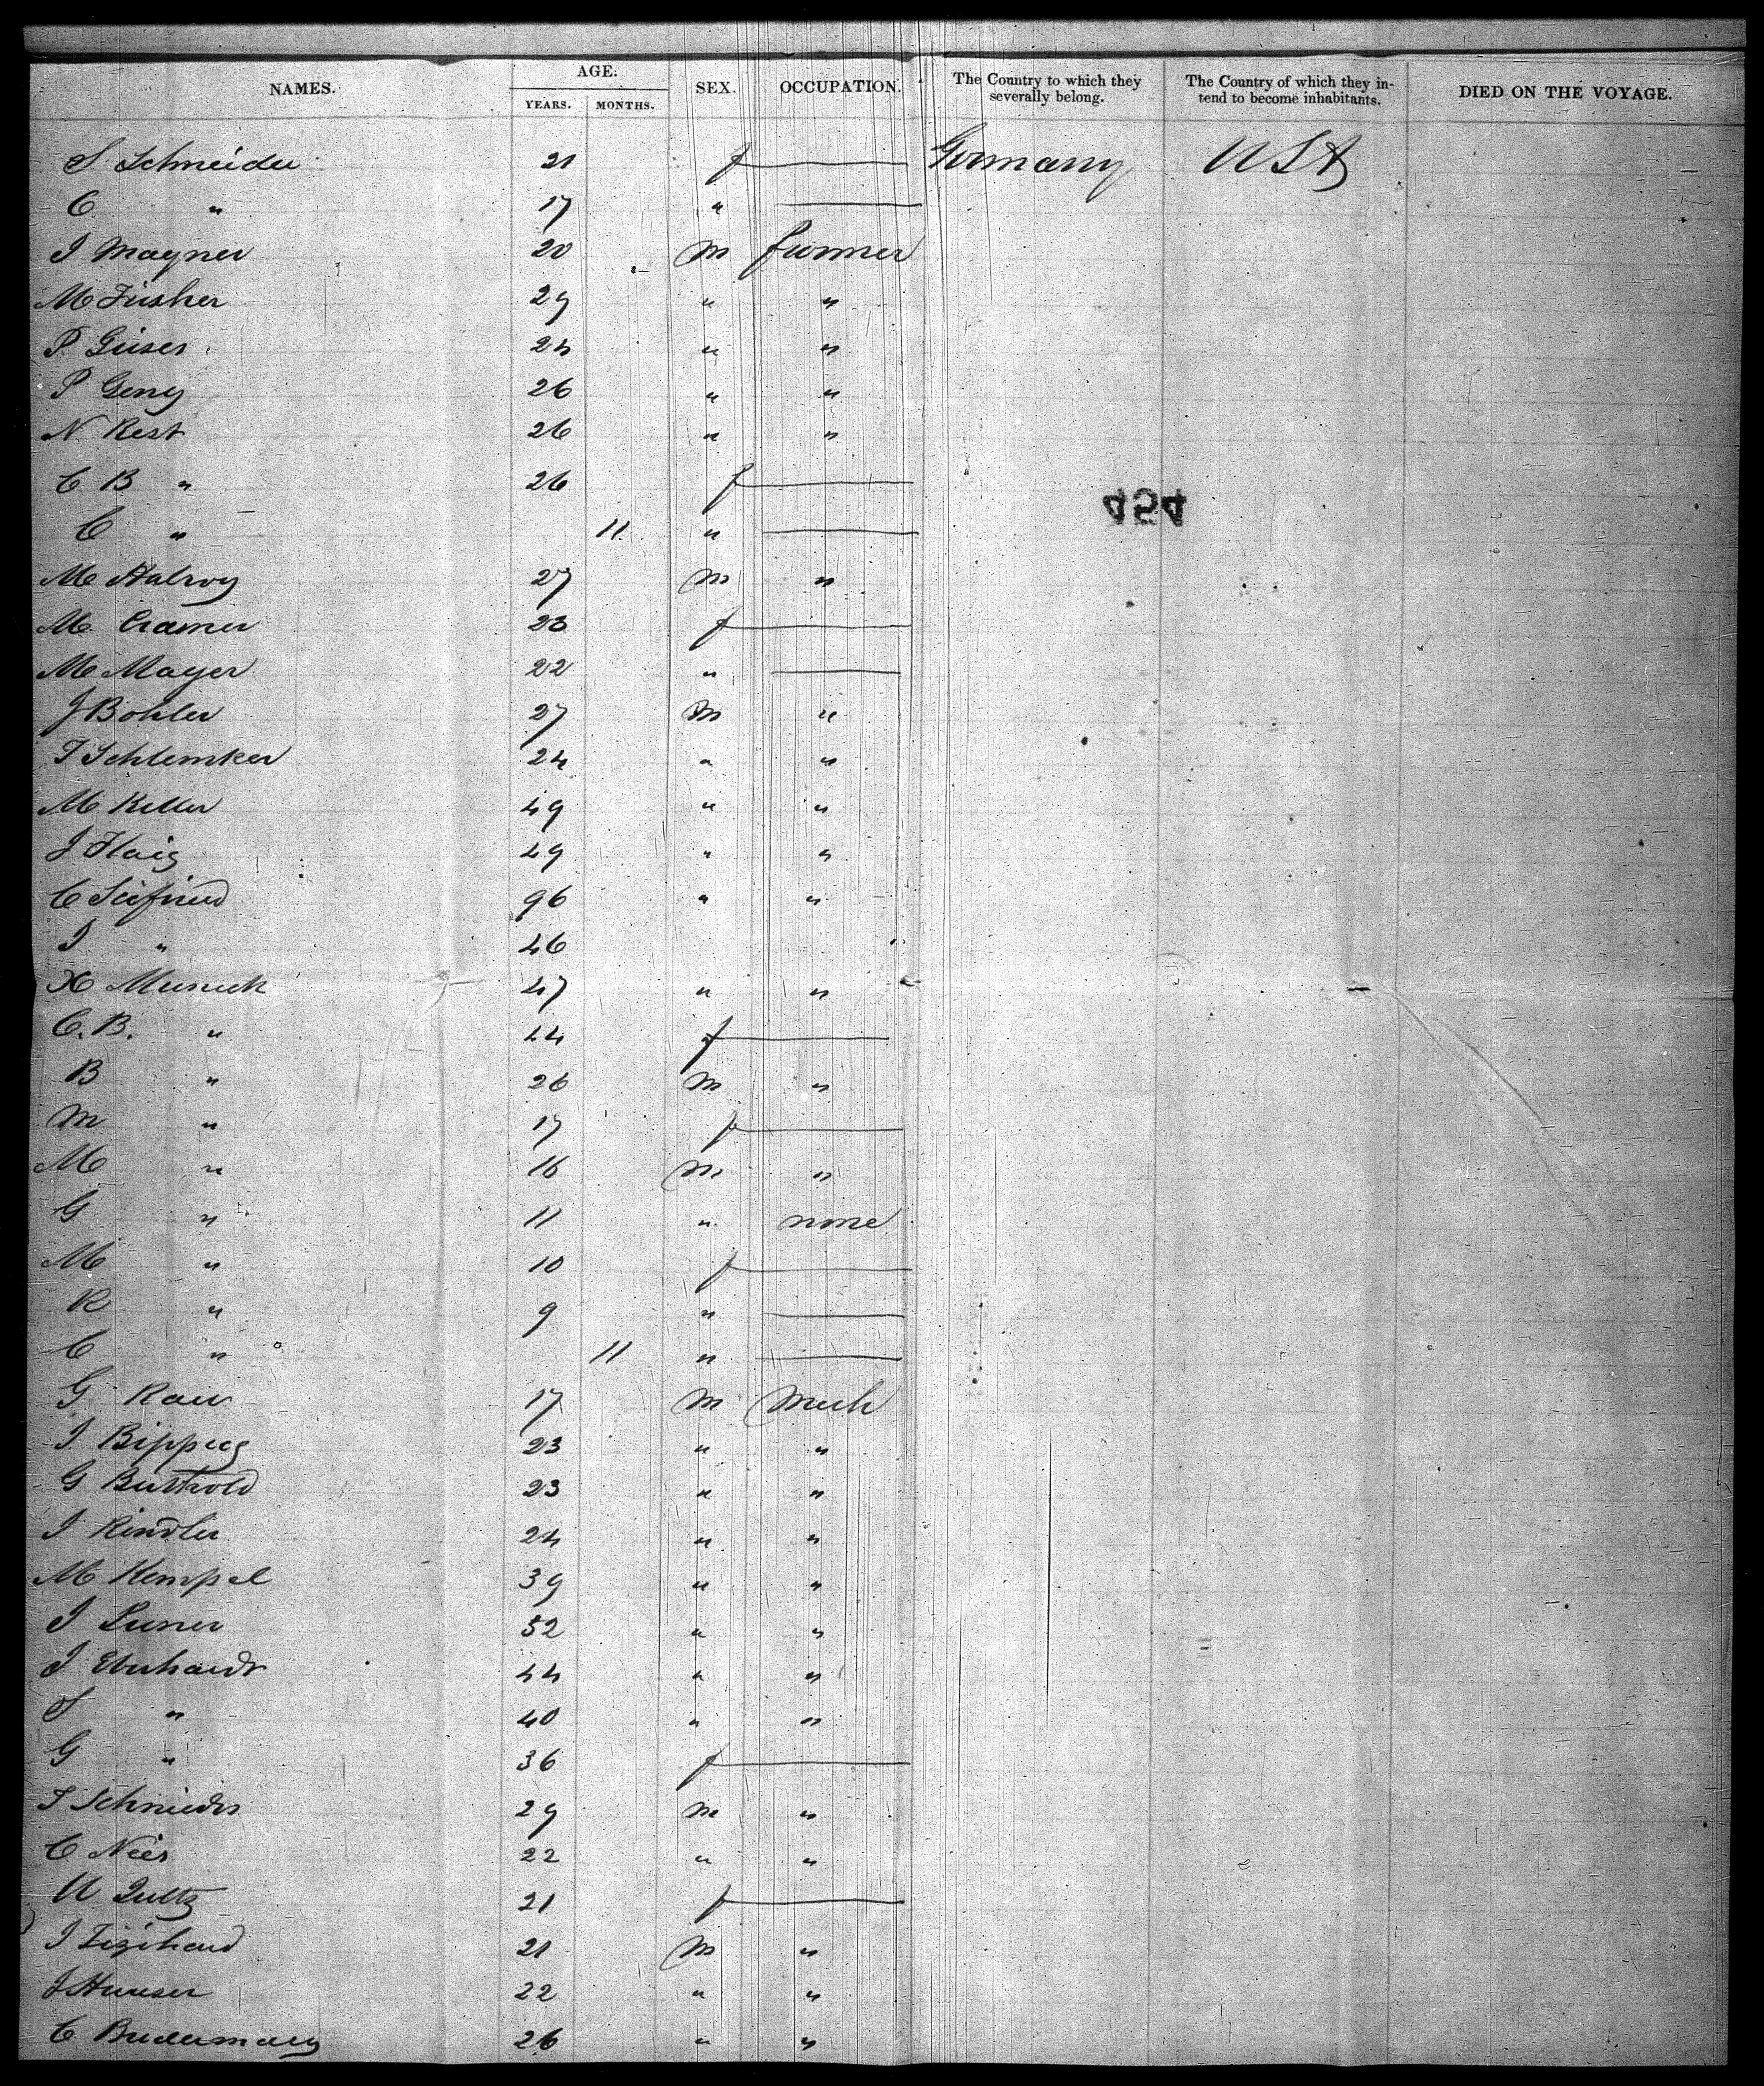 NAMES. AGE: SEX. OCCUPATION. The Country to which they severally belong. The Country of which they in-tend to become inhabitants. DIED ON THE VOYAGE.
YEARS. MONTHS.
S Schneider 21 f Germany USA
C " 17 "
J Magner 20 m farmer
M Fisher 29 " "
P Geiser 24 " "
P Geng 26 " "
N Kest 26 " "
C B " 26 f
454
C " 11 "
M 27 m "
M Cramer 23 f
M Mayer 22 "
J Bohler 27 m "
J Schlemker 24 " "
M Keller 49 " "
J Haig 49 " "
C Seifried 96 " "
J " 46
47 " "
C. B. " 44 f
B " 26 m "
M " 17 f
M " 16 m "
G " 11 " none
M " 10 f
R " 9 "
C " 11 "
G Rau 17 m Mech
J 23 " "
G Berthold 23 " "
J Kindler 24 " "
M Kempel 39 " "
J 52 " "
J Eberhardt 44 " "
S " 40 " "
G " 36 f
J Schnieder 29 m "
C Nies 22 " "
21 f
J 21 m "
J Hauser 22 " "
C 26 " "